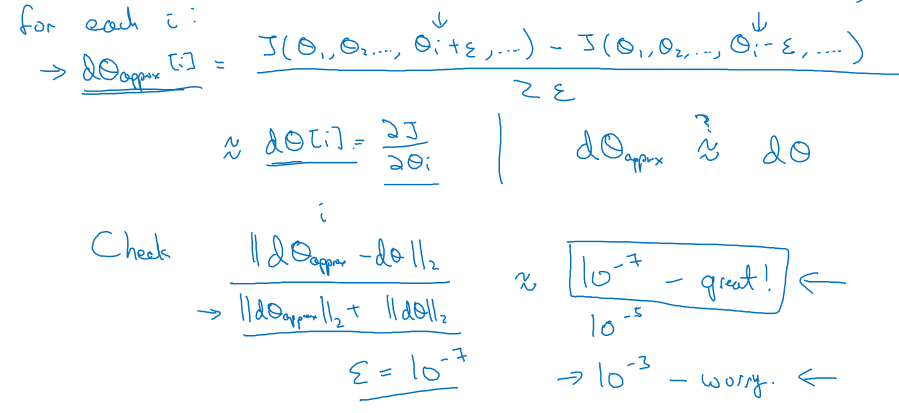 for each i:
→ dθapprox[i] = J(θ₁,θ₂,..., θᵢ+ε,...) - J(θ₁,θ₂,..., θᵢ-ε,....) / 2ε
≈ dθ[i] = ∂J/∂θᵢ | dθapprox ≈? dθ
i
Check ‖dθapprox - dθ‖₂ / ‖dθapprox‖₂ + ‖dθ‖₂ ≈ 10⁻⁷ - great! ←
10⁻⁵
ε = 10⁻⁷ → 10⁻³ - worry. ←